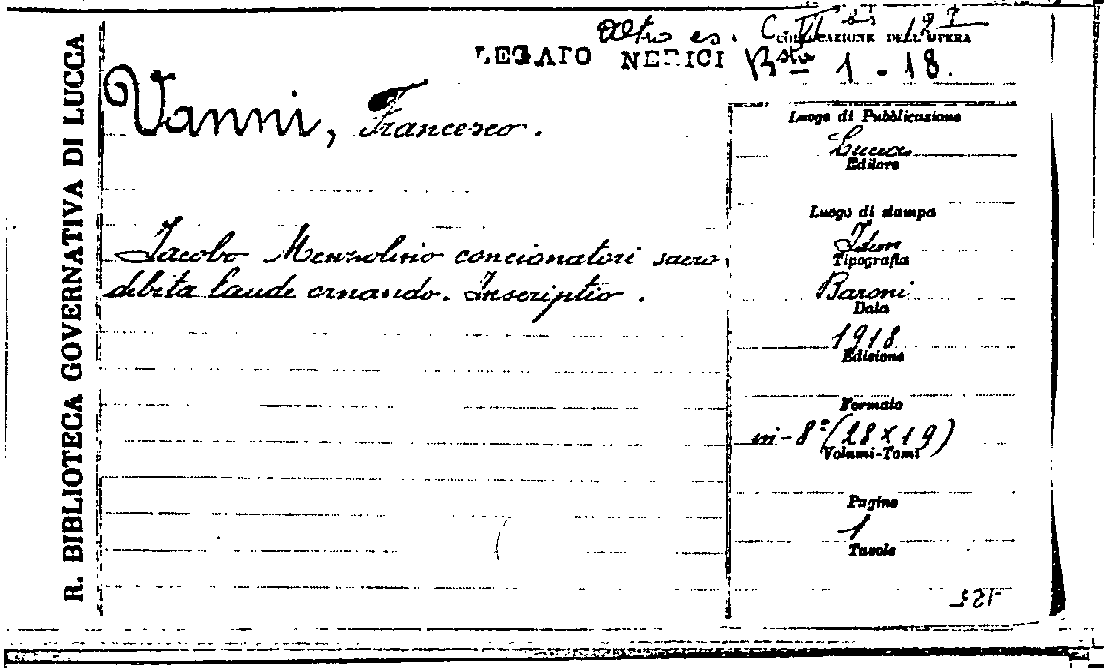 R. BIBLIOTECA GOVERNATIVA DI LUCCA
Altro es. C
COLLOCAZIONE DELL'OPERA
LEGATO NERICI Bsta 1 - 18.
Vanni, Francesco.
Jacobo Menzolinio concionatori sacro
debita laude ornando. Inscriptio.
Luogo di Pubblicazione
Lucca
Editore
Luogo di stampa
Idem
Tipografia
Baroni
Data
1918
Edizione
Formato
in-8° (28 x 19)
Volumi-Tomi
Pagine
1
Tavole